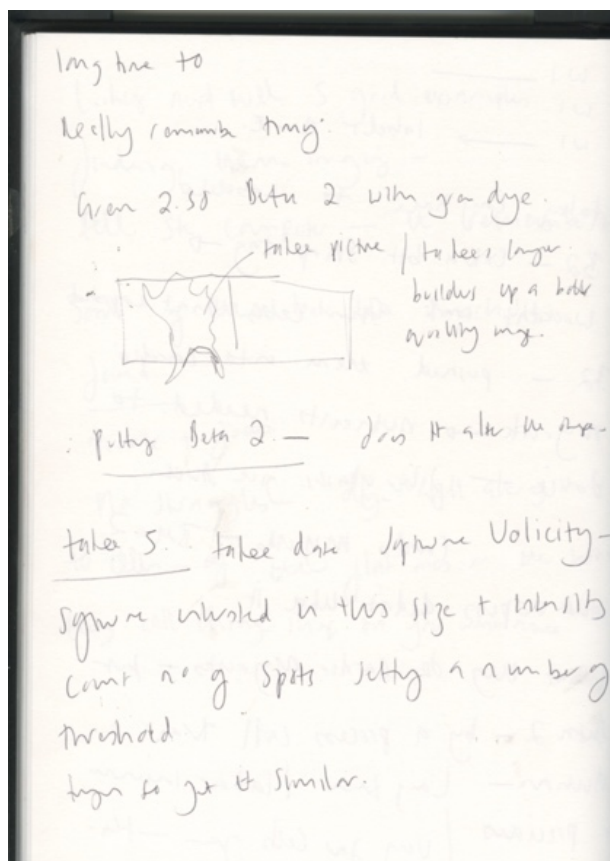 long time to
Really remember timing
Given 2.50 Beta 2 with green dye.
takes picture / takes longer
builds up a better
quality image.
putting Beta 2 — does it alter the shape
takes 5. takes data software Volicity —
software interested in this size + intensity
count no of spots setting a number of
threshold
to get it similar.